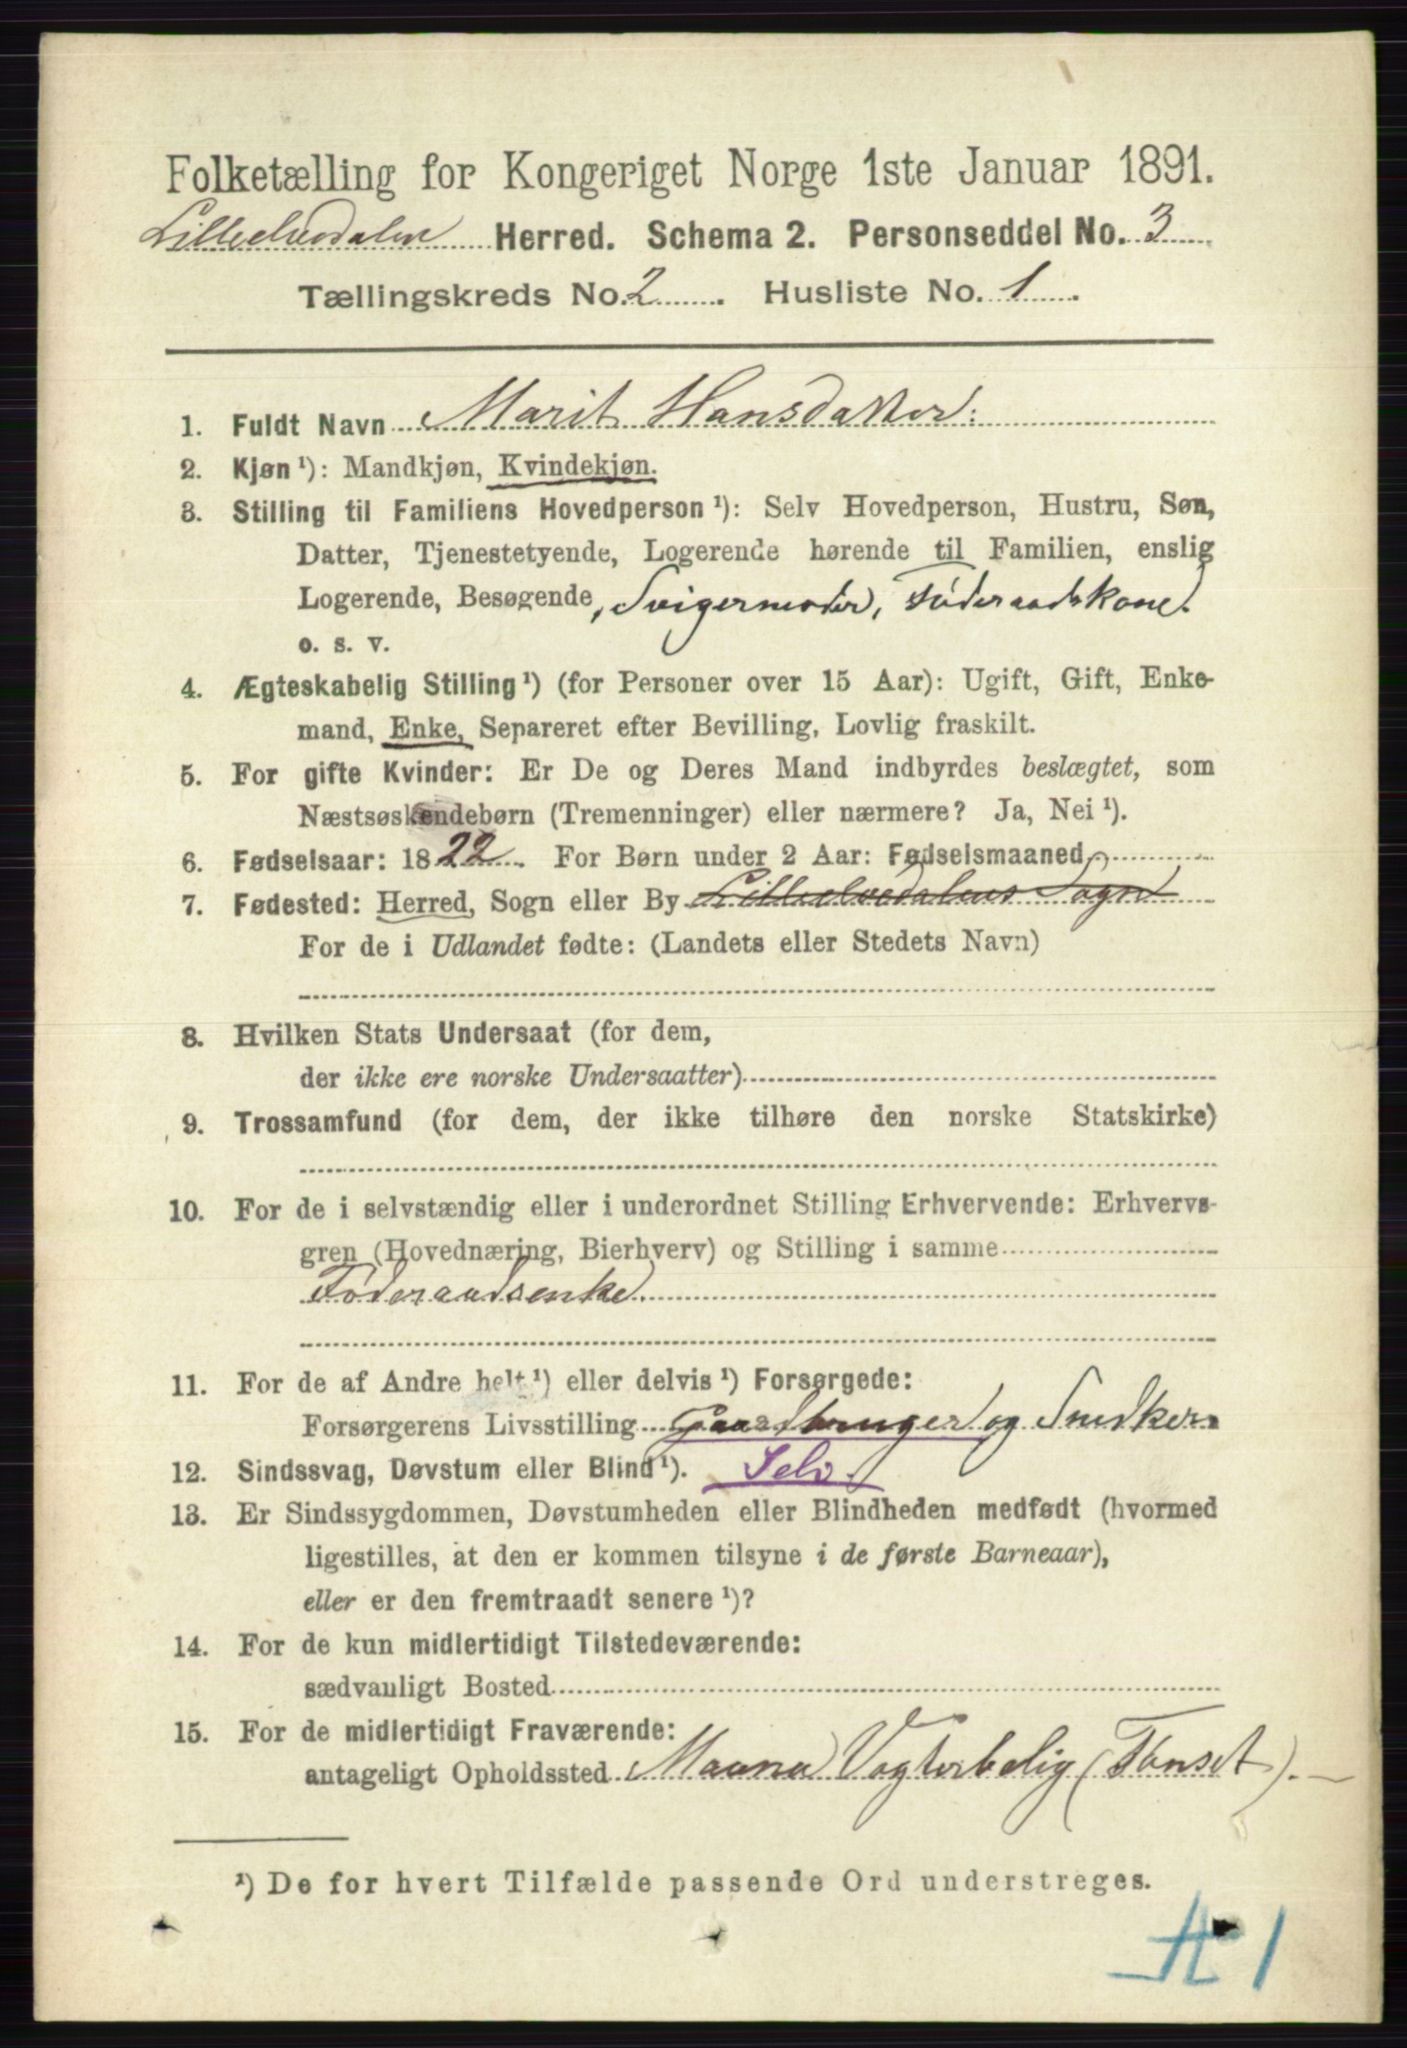 Folketælling for Kongeriget Norge 1ste Januar 1891.
Lilleelvedalen Herred. Schema 2. Personseddel No. 3
Tællingskreds No. 2. Husliste No. 1.
1. Fuldt Navn Marit Hansdatter:
2. Kjøn ¹): Mandkjøn, Kvindekjøn.
3. Stilling til Familiens Hovedperson ¹): Selv Hovedperson, Hustru, Søn,
Datter, Tjenestetyende, Logerende hørende til Familien, enslig
Logerende, Besøgende, Svigermoder, Føderaadskone.
o. s. v.
4. Ægteskabelig Stilling ¹) (for Personer over 15 Aar): Ugift, Gift, Enke-
mand, Enke, Separeret efter Bevilling, Lovlig fraskilt.
5. For gifte Kvinder: Er De og Deres Mand indbyrdes beslægtet, som
Næstsøskendebørn (Tremenninger) eller nærmere? Ja, Nei ¹).
6. Fødselsaar: 1822. For Børn under 2 Aar: Fødselsmaaned
7. Fødested: Herred, Sogn eller By Lilleelvedalens Sogn
For de i Udlandet fødte: (Landets eller Stedets Navn)
8. Hvilken Stats Undersaat (for dem,
der ikke ere norske Undersaatter)
9. Trossamfund (for dem, der ikke tilhøre den norske Statskirke)
10. For de i selvstændig eller i underordnet Stilling Erhvervende: Erhvervs-
gren (Hovednæring, Bierhverv) og Stilling i samme
Føderaadsenke.
11. For de af Andre helt ¹) eller delvis ¹) Forsørgede:
Forsørgerens Livsstilling Gaardbruger og Snedker
12. Sindssvag, Døvstum eller Blind ¹). Selv.
13. Er Sindssygdommen, Døvstumheden eller Blindheden medfødt (hvormed
ligestilles, at den er kommen tilsyne i de første Barneaar),
eller er den fremtraadt senere ¹)?
14. For de kun midlertidigt Tilstedeværende:
sædvanligt Bosted
15. For de midlertidigt Fraværende:
antageligt Opholdssted Mauna Vogterbolig (Tønset).
¹) De for hvert Tilfælde passende Ord understreges.